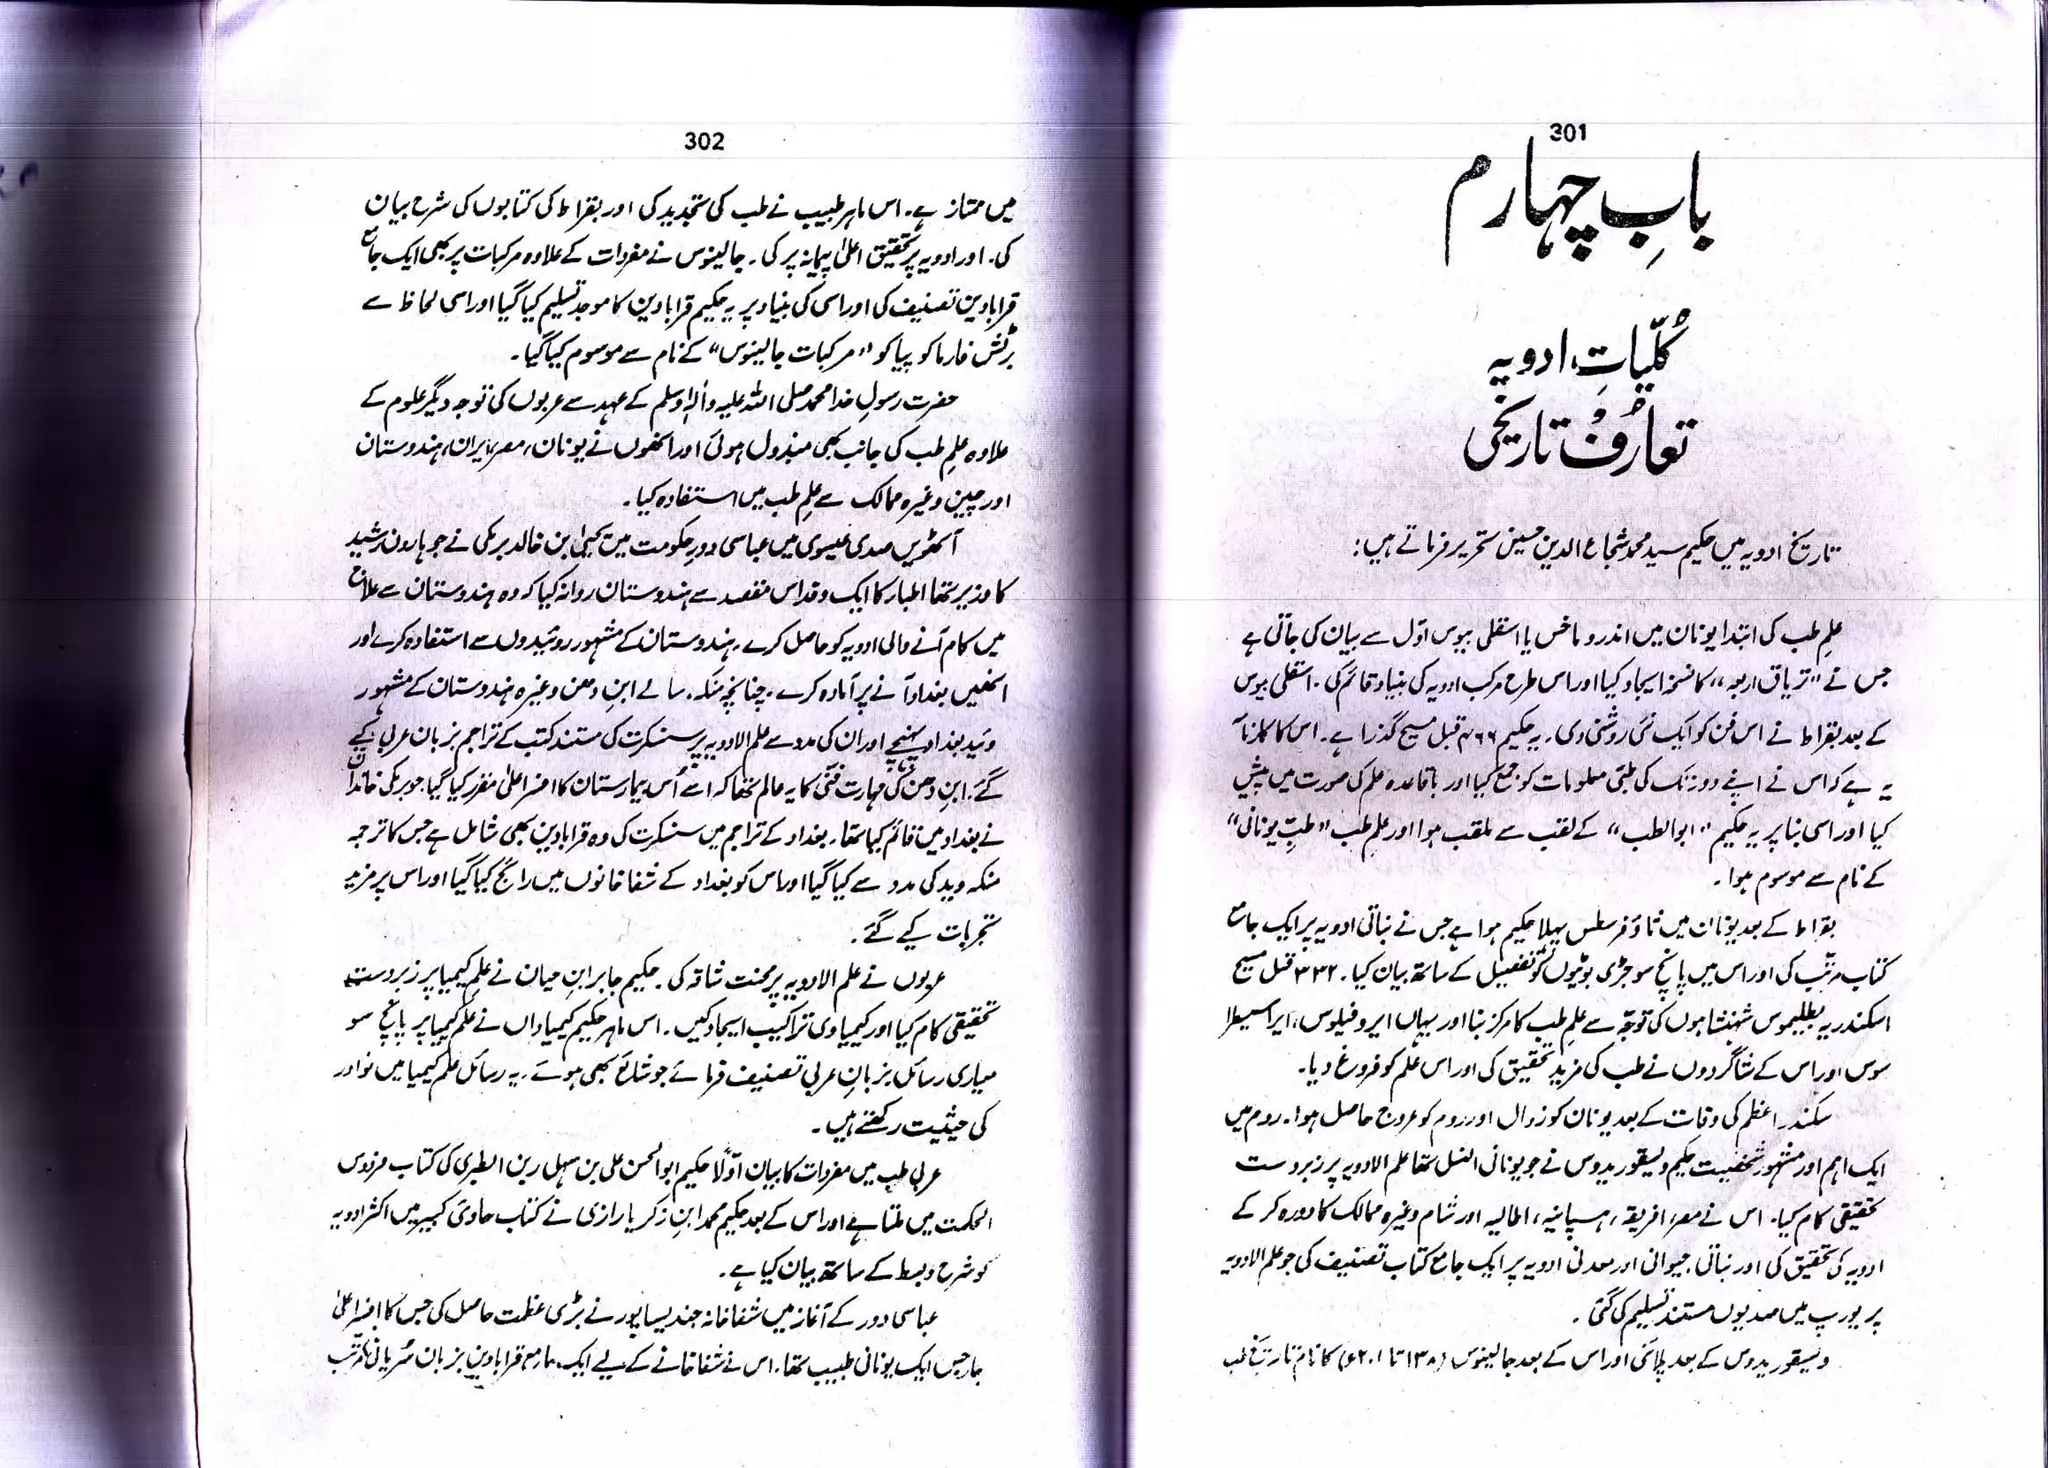 301
بابِ چہارم
کُلّیاتِ ادویہ
تعارُفْ تاریخی
تاریخ ادویہ میں حکیم سید محمد شجاع الدین حسین تحریر فرماتے ہیں:
علمِ طب کی ابتدا یونان میں اندروماخس یا اسقلی بیوس اوّل سے بیان کی جاتی ہے
جس نے "تریاق اربعہ" کا نسخہ ایجاد کیا اور اس طرح مرکب ادویہ کی بنیاد قائم کی۔ اسقلی بیوس
کے بعد بقراط نے اس فن کو ایک نئی روشنی دی۔ یہ حکیم ۴۶۶ قبل مسیح گذرا ہے۔ اس کا کارنامہ
یہ ہے کہ اس نے اپنے دور تک کی طبّی معلومات کو جمع کیا اور باقاعدہ علم کی صورت میں پیش
کیا اور اسی بنا پر یہ حکیم "ابوالطب" کے لقب سے ملقب ہوا اور علمِ طب "طبِّ یونانی"
کے نام سے موسوم ہوا۔
بقراط کے بعد یونان میں ثاؤفرسطس پہلا حکیم ہوا ہے جس نے نباتی ادویہ پر ایک جامع
کتاب مرتّب کی اور اس میں پانچ سو جڑی بوٹیوں کو تفصیل کے ساتھ بیان کیا۔ ۳۳۲ قبل مسیح
اسکندریہ بطلیموس شہنشاہوں کی توجّہ سے علمِ طب کا مرکز بنا اور یہاں ایروفیلوس، ایراسیطرا
سوس اور اس کے شاگردوں نے طب کی مزید تحقیق کی اور اس علم کو فروغ دیا۔
سکندر اعظم کی وفات کے بعد یونان کو زوال اور روم کو عروج حاصل ہوا۔ روم میں
ایک اہم اور مشہور شخصیت حکیم دیسقوریدوس نے جو یونانی النسل تھا علم الادویہ پر زبردست
تحقیقی کام کیا۔ اس نے مصر، افریقہ، ہسپانیہ، اطالیہ اور شام وغیرہ ممالک کا دورہ کر کے
ادویہ کی تحقیق کی اور نباتی، حیوانی اور معدنی ادویہ پر ایک جامع کتاب تصنیف کی جو علم الادویہ
پر یورپ میں صدیوں مستند تسلیم کی گئی۔
دیسقوریدوس کے بعد پلائنی اور اس کے بعد جالینوس (۱۳۸ تا ۲۰۱ء) کا نام تاریخ طب
302
میں ممتاز ہے۔ اس ماہر طبیب نے طب کی تجدید کی اور بقراط کی کتابوں کی شرح بیان
کی۔ اور ادویہ پر تحقیق اعلیٰ پیمانہ پر کی۔ جالینوس نے مفردات کے علاوہ مرکبات پر بھی ایک جامع
قرابادین تصنیف کی اور اسی کی بنیاد پر یہ حکیم قرابادین کا موجد تسلیم کیا گیا اور اسی لحاظ سے
برٹش فارماکوپیا کو "مرکبات جالینوس" کے نام سے موسوم کیا گیا۔
حضرت رسولِ خدا محمد صلی اللہ علیہ وآلہٖ وسلم کے عہد سے عربوں کی توجہ دیگر علوم کے
علاوہ علمِ طب کی جانب بھی مبذول ہوئی اور انھوں نے یونان، مصر، ایران، ہندوستان
اور چین وغیرہ ممالک سے علمِ طب میں استفادہ کیا۔
آٹھویں صدی عیسوی میں عباسی دورِ حکومت میں یحییٰ بن خالد برمکی نے جو ہارون رشید
کا وزیر تھا اطبار کا ایک وفد اس مقصد سے ہندوستان روانہ کیا کہ وہ ہندوستان سے علاج
میں کام آنے والی ادویہ کو حاصل کرے۔ ہندوستان کے مشہور وئیدوں سے استفادہ کرے اور
انھیں بغداد آنے پر آمادہ کرے۔ چنانچہ منکہ، سالے ابنِ دھن وغیرہ ہندوستان کے مشہور
وئید بغداد پہنچے اور ان کی مدد سے علم الادویہ پر سنسکرت کی مستند کتب کے تراجم بزبان عربی کیے
گئے۔ ابنِ دھن کی مہارت فنّی کا یہ عالم تھا کہ اسے اُس بیمارستان کا افسر اعلیٰ مقرر کیا گیا جو برمکی خاندان
نے بغداد میں قائم کیا تھا۔ بغداد کے تراجم میں سنسکرت کی وہ قرابادین بھی شامل ہے جس کا ترجمہ
منکہ وید کی مدد سے کیا گیا اور اس کو بغداد کے شفاخانوں میں رائج کیا گیا اور اس پر مزید
تجربات کیے گئے۔
عربوں نے علم الادویہ پر محنت شاقہ کی۔ حکیم جابر ابنِ حیان نے علمِ کیمیا پر زبردست
تحقیقی کام کیا اور کیمیاوی تراکیب ایجاد کیں۔ اس ماہر حکیم کیمیاداں نے علمِ کیمیا پر پانچ سو
معیاری رسائل بزبانِ عربی تصنیف فرمائے جو شائع بھی ہوئے۔ یہ رسائل علمِ کیمیا میں نوادر
کی حیثیت رکھتے ہیں۔
عربی طب میں مفردات کا بیان اوّلاً حکیم ابوالحسن علی بن سہل ربن الطبری کی کتاب فردوس
الحکمت میں ملتا ہے اور اس کے بعد حکیم محمد ابنِ زکریا رازی نے کتاب حاوی کبیر میں اکثر ادویہ
کو شرح و بسط کے ساتھ بیان کیا ہے۔
عباسی دور کے آغاز میں شفاخانہ جندیساپور نے بڑی عظمت حاصل کی جس کا افسر اعلیٰ
جارجس ایک یونانی طبیب تھا۔ اس نے شفاخانے کے لیے ایک جامع قرابادین بزبان سُریانی مرتّب